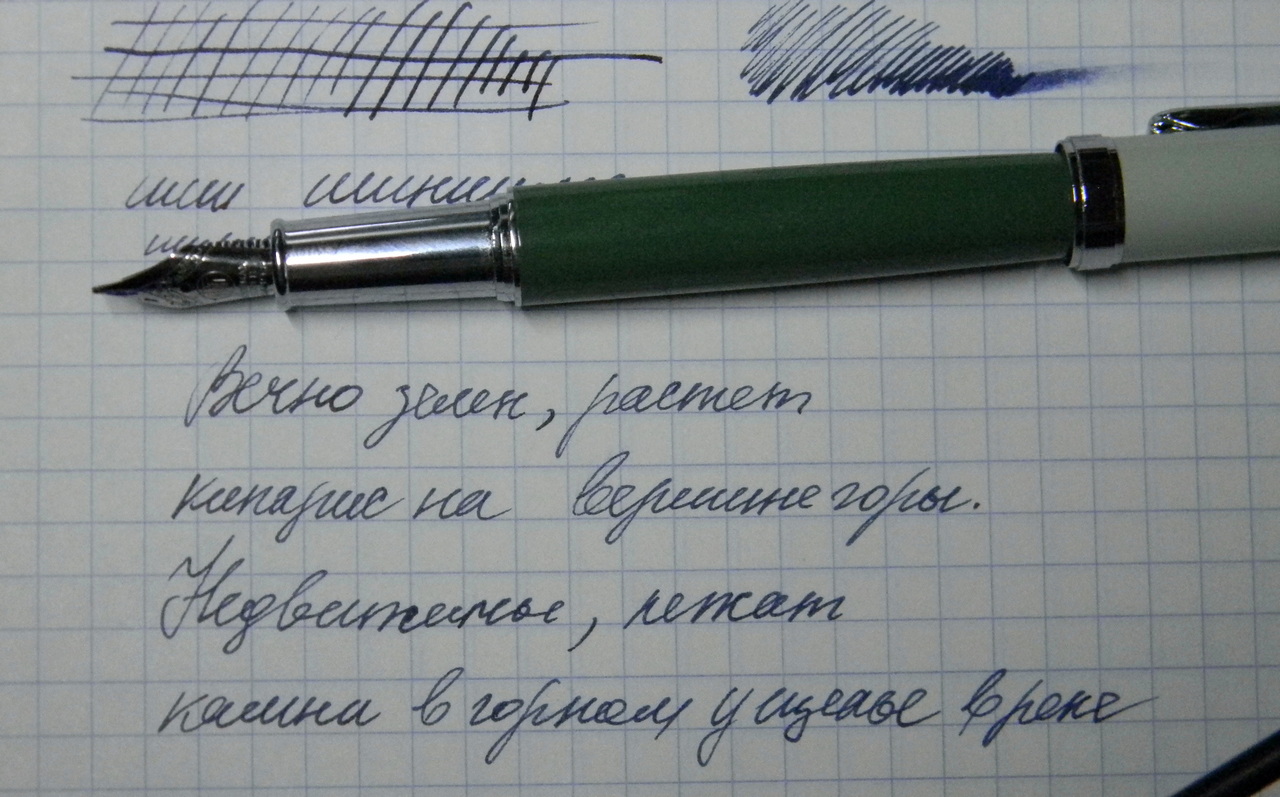 Вечно зелен, растет
кипарис на вершине горы.
Недвижимые, лежат
камни в горном ущелье в реке